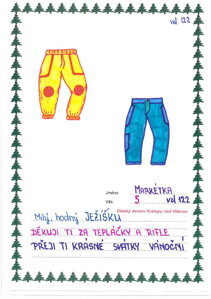 vel 122
Jméno: MARKÉTKA
Věk: 5 vel 122
Dětský domov Kralupy nad Vltavou
Milý, hodný JEŽÍŠKU
DĚKUJI TI ZA TEPLÁČKY A RIFLE
PŘEJI TI KRÁSNÉ SVÁTKY VÁNOČNÍ